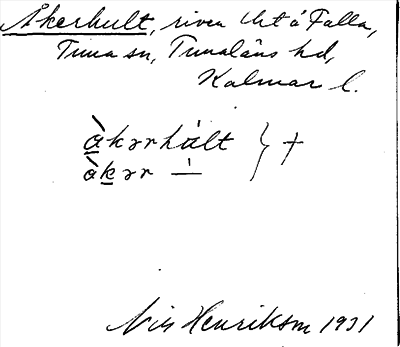 Åkerhult, riven lht å Falla,
Tuna sn, Tunaläns hd,
Kalmar l.
àkərhált } +
àkər —
Nils Henrikson 1931